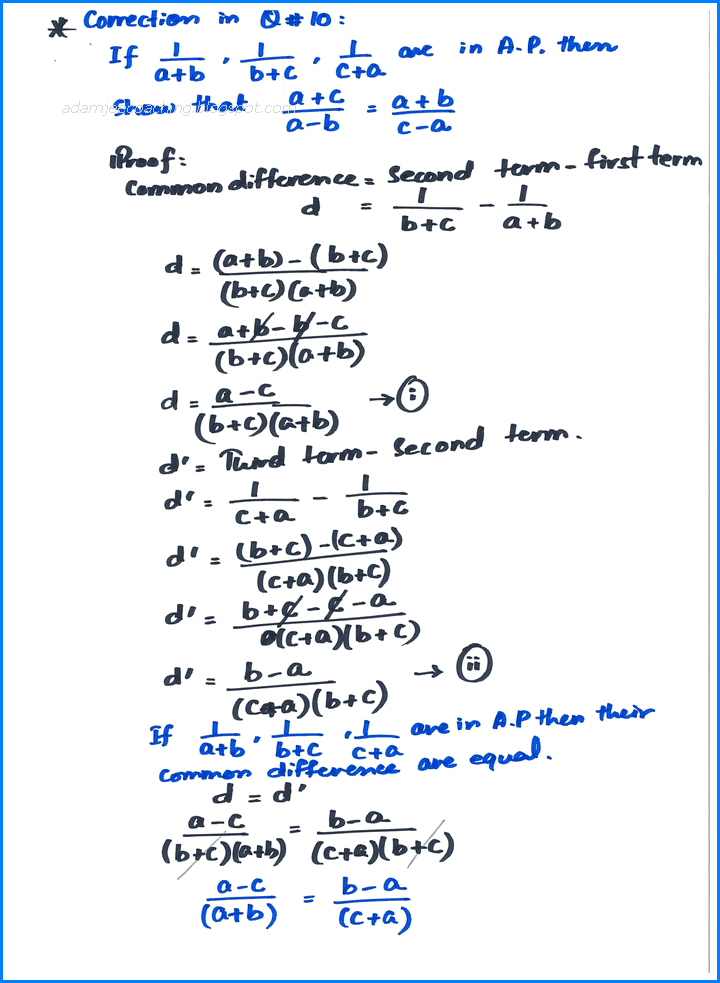 * Correction in Q#10:
If 1/(a+b), 1/(b+c), 1/(c+a) are in A.P. then
Show that (a+c)/(a-b) = (a+b)/(c-a)
adamjeecoaching.blogspot.com
Proof:
Common difference = Second term - first term
d = 1/(b+c) - 1/(a+b)
d = ((a+b)-(b+c))/((b+c)(a+b))
d = (a+b-b-c)/((b+c)(a+b))
d = (a-c)/((b+c)(a+b)) → (i)
d' = Third term - Second term.
d' = 1/(c+a) - 1/(b+c)
d' = ((b+c)-(c+a))/((c+a)(b+c))
d' = (b+c-c-a)/((c+a)(b+c))
d' = (b-a)/((c+a)(b+c)) → (ii)
If 1/(a+b), 1/(b+c), 1/(c+a) are in A.P then their
common difference are equal.
d = d'
(a-c)/((b+c)(a+b)) = (b-a)/((c+a)(b+c))
(a-c)/(a+b) = (b-a)/(c+a)